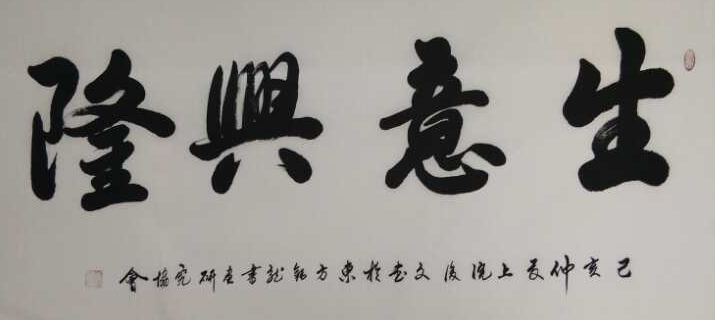 生意興隆
己亥仲夏上浣後文書於東方龍書畫研究協會